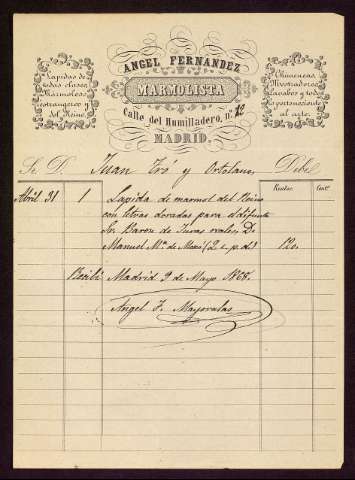 ANGEL FERNANDEZ
MARMOLISTA
Calle del Humilladero, nº 12
MADRID.
Lapidas de
todas clases
Marmoles
estrangeros y
del Reino.
Chimeneas
Mostradores
Lavabos y todo
lo perteneciente
al arte.
Sr. D. Juan Tró y Ortolano Debe
Reales Cent.
Abril 31 1 Lapida de marmol del Reino
con letras doradas para el difunto
Sr. Baron de
Manuel Mª de (Q. e. p. d.) 120.
Recibi Madrid 9 de Mayo 1868.
Angel F. Mayorales